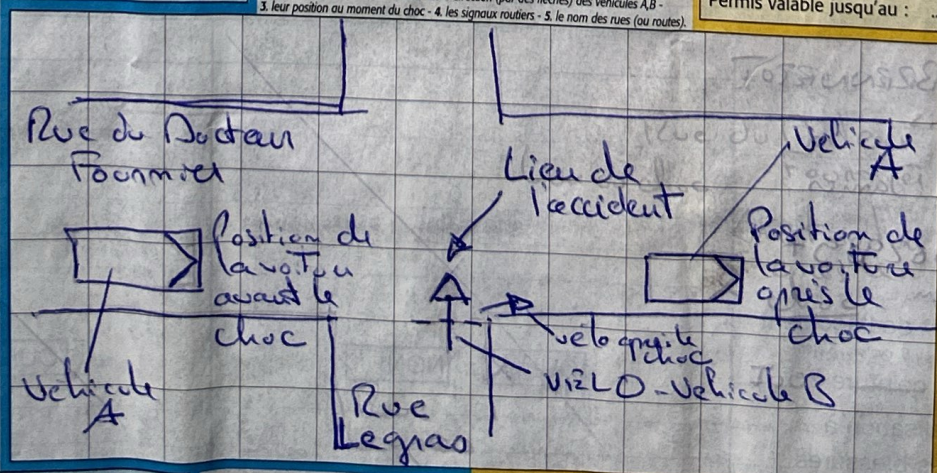 3. leur position au moment du choc - 4. les signaux routiers - 5. le nom des rues (ou routes).
Permis valable jusqu'au :
Rue du Docteur
Fournier
Lieu de
l'accident
Vehicule
A
Position de
la voiture
avant le
choc
Position de
la voiture
après le
choc
vélo après le
choc
VÉLO - Vehicule B
Vehicule
A
Rue
Legras